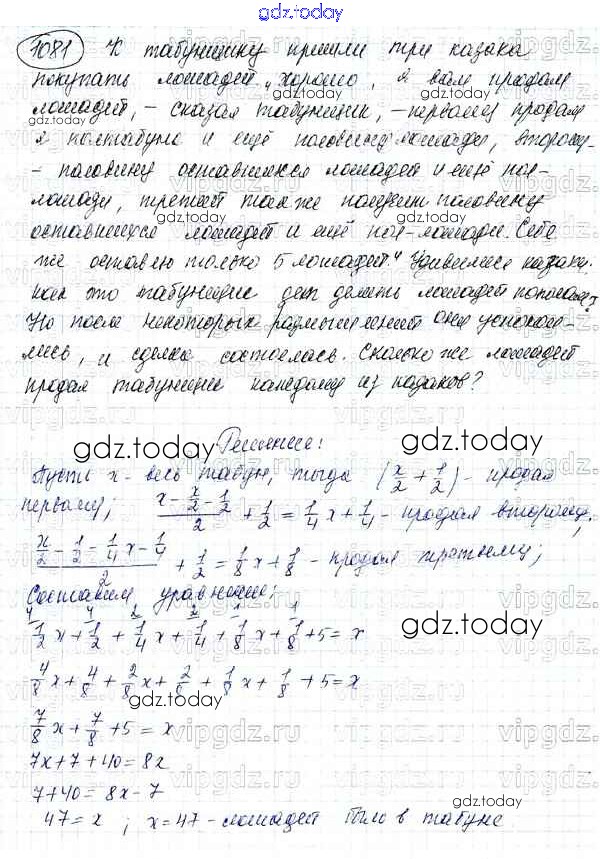 gdz.today
1081 К табунщику пришли три казака
покупать лошадей. „Хорошо, я вам продам
лошадей, – сказал табунщик, – первому продам
я полтабуна и ещё половину лошади, второму
– половину оставшихся лошадей и ещё пол-
лошади, третий также получит половину
оставшихся лошадей и ещё пол-лошади. Себе
же оставлю только 5 лошадей.“ Удивились казаки,
как это табунщик делить лошадей пополам?
Но после некоторых размышлений они успокои-
лись, и сделка состоялась. Сколько же лошадей
продал табунщик каждому из казаков?
Решение:
Пусть x – весь табун, тогда (x/2 + 1/2) – продал
первому; (x - x/2 - 1/2)/2 + 1/2 = 1/4 x + 1/4 – продал второму;
(x/2 - 1/2 - 1/4 x - 1/4)/2 + 1/2 = 1/8 x + 1/8 – продал третьему;
Составим уравнение:
1/2 x + 1/2 + 1/4 x + 1/4 + 1/8 x + 1/8 + 5 = x
4/8 x + 4/8 + 2/8 x + 2/8 + 1/8 x + 1/8 + 5 = x
7/8 x + 7/8 + 5 = x
7x + 7 + 40 = 8x
7 + 40 = 8x - 7
47 = x ; x = 47 – лошадей было в табуне